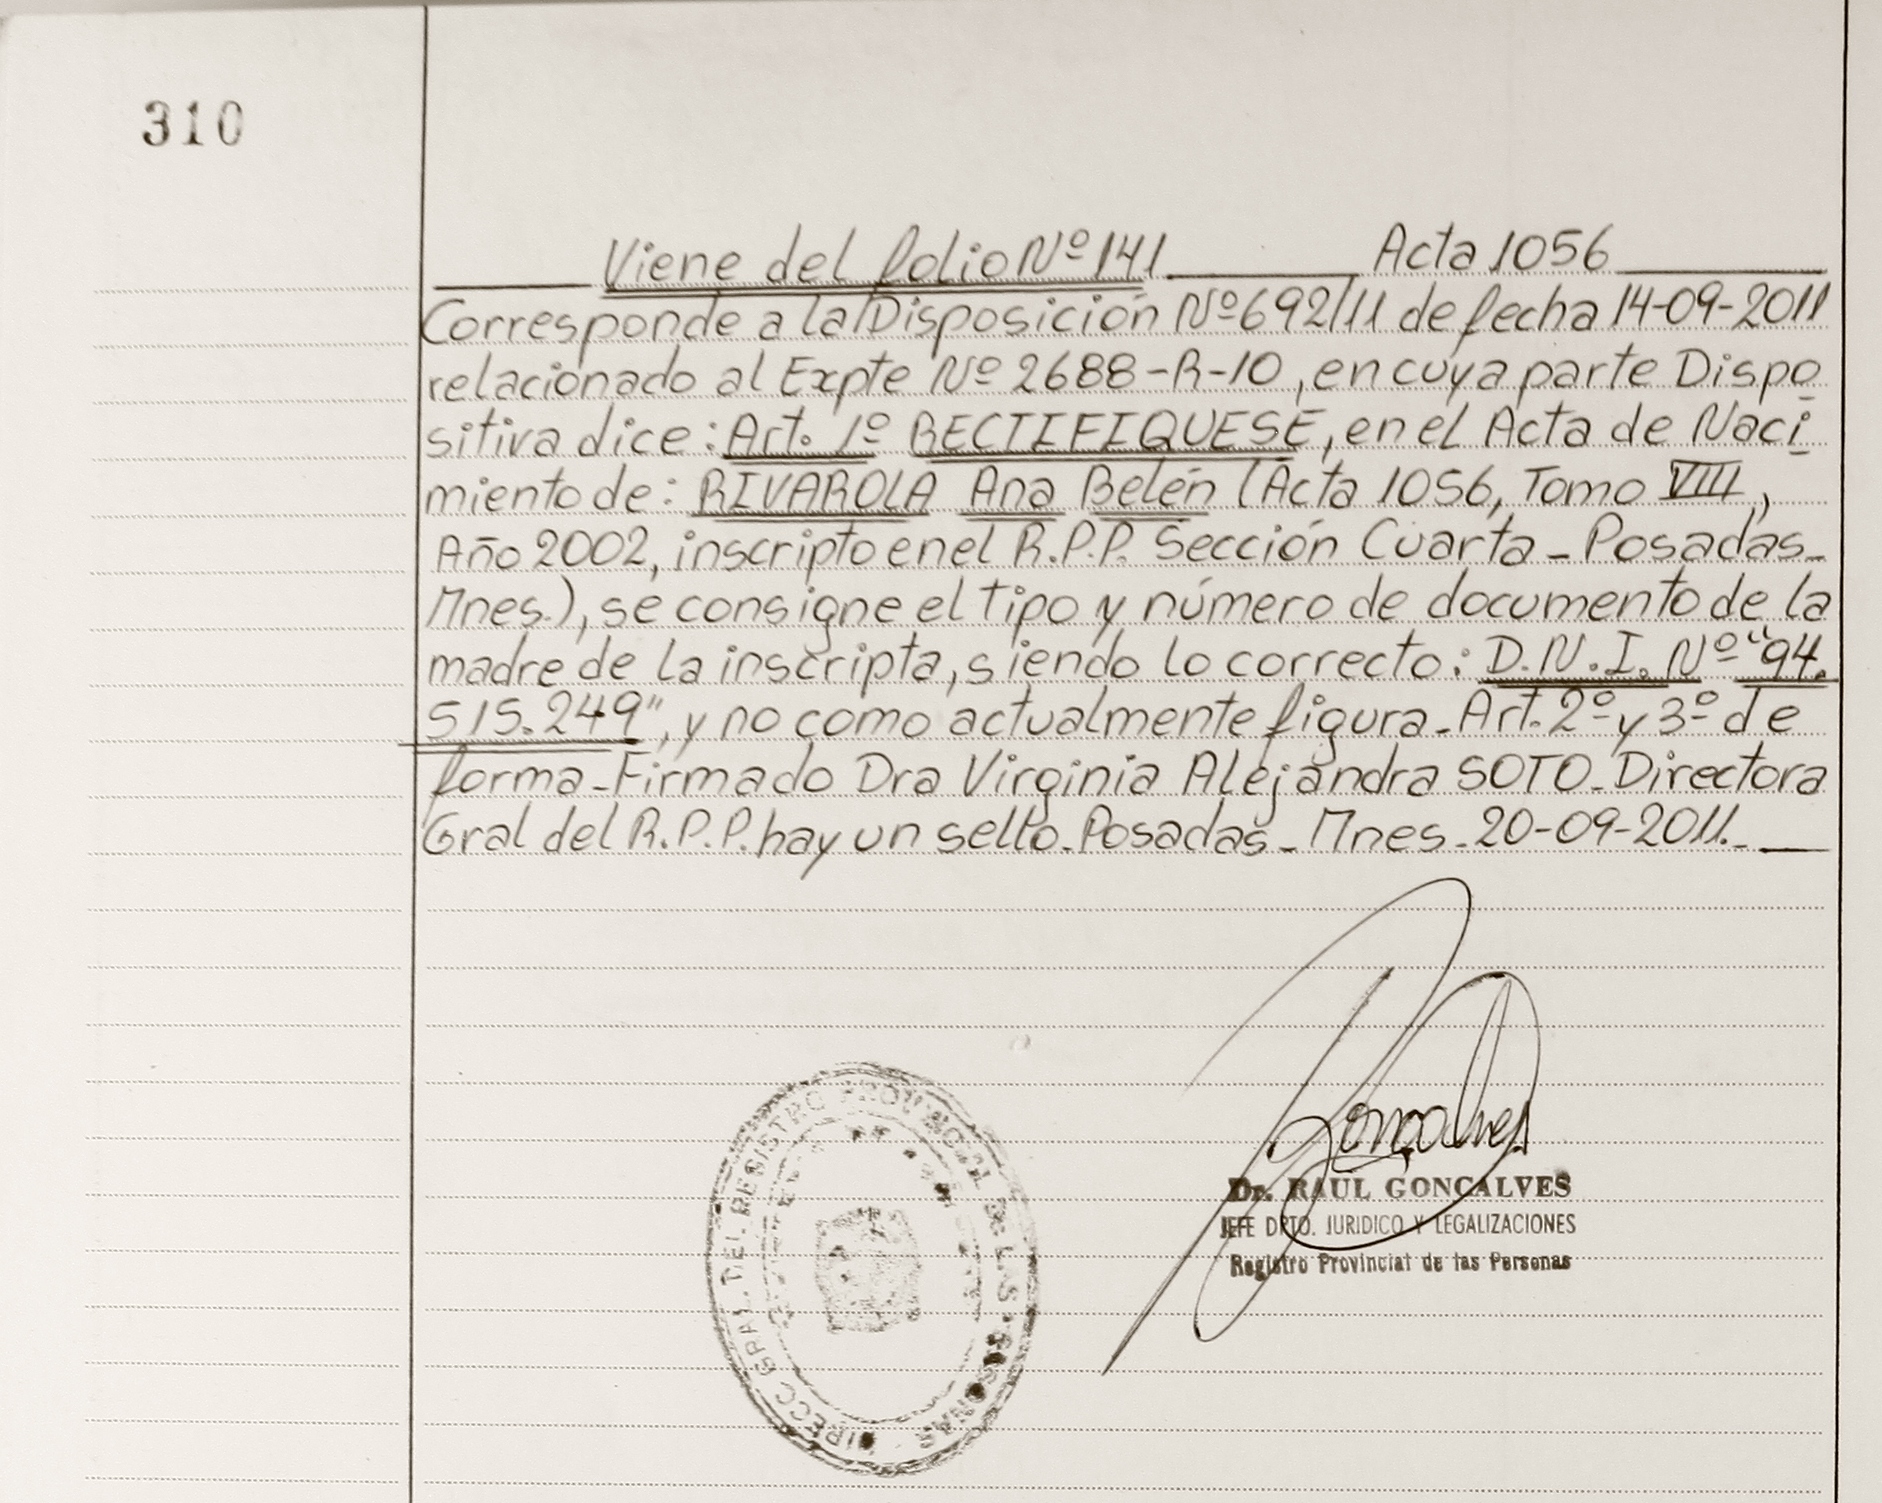 310
Viene del folio Nº 141 Acta 1056
Corresponde a la Disposición Nº 692/11 de fecha 14-09-2011
relacionado al Expte Nº 2688-R-10, en cuya parte Dispo
sitiva dice: Art. 1º RECTIFIQUESE, en el Acta de Naci
miento de: RIVAROLA Ana Belén (Acta 1056, Tomo VIII,
Año 2002, inscripto en el R.P.P. Sección Cuarta - Posadas -
Mnes.), se consigne el tipo y número de documento de la
madre de la inscripta, siendo lo correcto: D.N.I. Nº "94.
515.249", y no como actualmente figura - Art. 2º y 3º de
forma - Firmado Dra Virginia Alejandra SOTO - Directora
Gral del R.P.P. hay un sello. Posadas - Mnes - 20-09-2011.-
Goncalves
Dr. RAUL GONCALVES
JEFE DPTO. JURIDICO Y LEGALIZACIONES
Registro Provincial de las Personas
DIRECC GRAL. DEL REGISTRO PROVINCIAL DE LAS PERSONAS